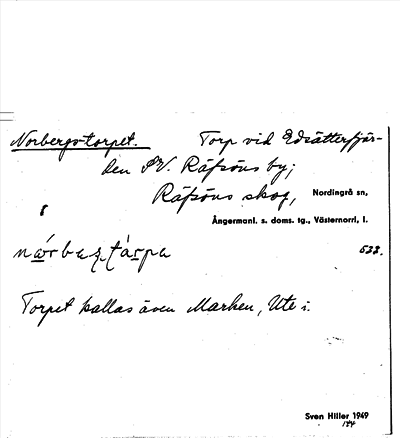 Norbergstorpet. Torp vid Edsätterfjär-
den SV. Räfsöns by;
Räfsöns skog, Nordingrå sn,
Ångermanl. s. doms. tg., Västernorrl. l.
532.
Torpet kallas även Marken, Ute i.
Sven Hiller 1949
144